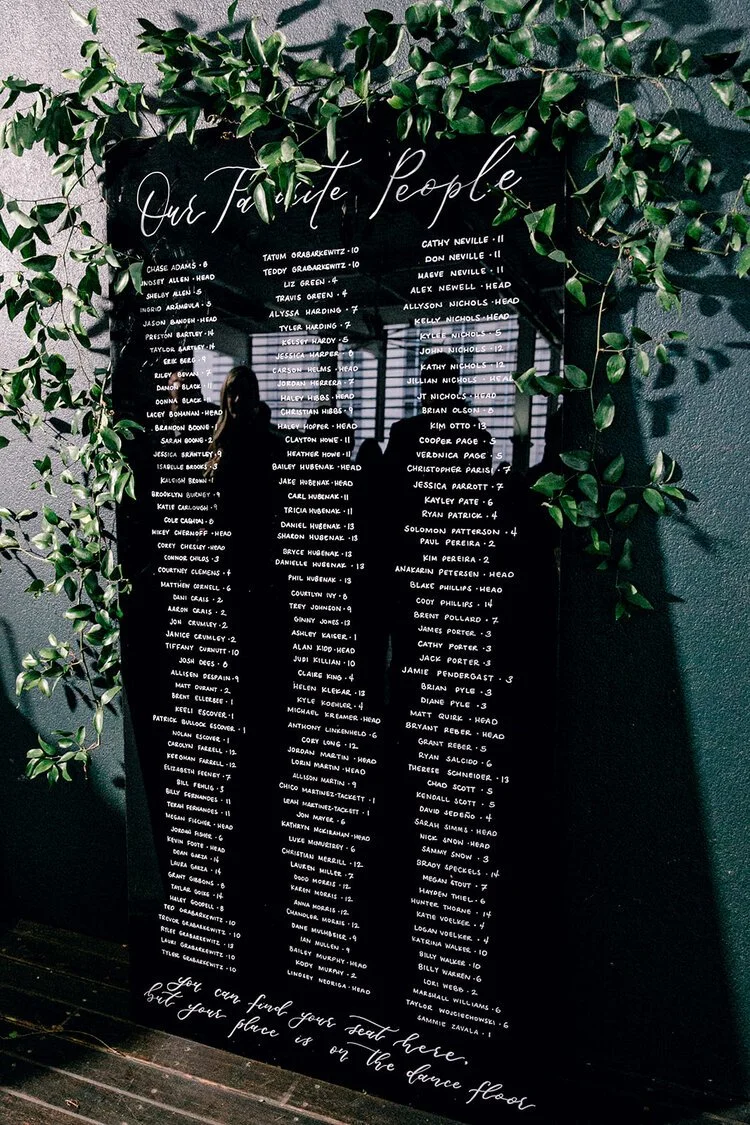 Our Favorite People
CHASE ADAMS • 8
LINDSEY ALLEN • HEAD
SHELBY ALLEN • 5
INGRID ARÁMBULA • 5
JASON BANDEH • HEAD
PRESTON BARTLEY • 14
TAYLOR BARTLEY • 14
ERIK BERG • 9
RILEY BEVAN • 7
DAMON BLACK • 11
DONNA BLACK • 11
LACEY BOHANAN • HEAD
BRANDON BOONE •
SARAH BOONE • 2
JESSICA BRANTLEY • 9
ISABELLE BROOKS • 3
KALEIGH BROWN •
BROOKLYN BURNEY • 9
KATIE CARLOUGH • 9
COLE CASHION • 8
MIKEY CHERNOFF • HEAD
COREY CHESLEY • HEAD
CONNOR CHILDS • 3
COURTNEY CLEMENS • 4
MATTHEW CORNELL • 6
DANI CRAIS • 2
AARON CRAIS • 2
JON CRUMLEY • 2
JANICE CRUMLEY • 2
TIFFANY CURNUTT • 10
JOSH DEES • 8
ALLISEN DESPAIN • 9
MATT DURANT • 2
BRENT ELLERBEE • 1
KEELI ESCOVER • 1
PATRICK BULLOCK ESCOVER • 1
NOLAN ESCOVER • 1
KEECHIA ESCOVER • 1
CAROLYN FARRELL • 12
KEEGHAN FARRELL • 12
ELIZABETH FEENEY • 7
BILL FEHLIG • 3
BILLY FERNANDES • 11
TERAH FERNANDES • 11
MEGAN FISCHER • HEAD
JORDIN FISHER • 6
KEVIN FOOTE • HEAD
DEAN GARZA • 14
LAURA GARZA • 14
GRANT GIBBONS • 8
TAYLAR GOINS • 14
HALEY GOODELL • 8
TED GRABARKEWITZ • 10
TREVOR GRABARKEWITZ • 10
RYSE GRABARKEWITZ • 13
LAURI GRABARKEWITZ • 10
TYLER GRABARKEWITZ • 10
TATUM GRABARKEWITZ • 10
TEDDY GRABARKEWITZ • 10
LIZ GREEN • 4
TRAVIS GREEN • 4
ALYSSA HARDING • 7
TYLER HARDING • 7
KELSEY HARDY • 5
JESSICA HARPER • 8
CARSON HELMS • HEAD
JORDAN HERRERA • 7
HALEY HIBBS • HEAD
CHRISTIAN HIBBS • 9
HALEY HOPPER • HEAD
CLAYTON HOWE • 11
HEATHER HOWE • 11
BAILEY HUBENAK • HEAD
JAKE HUBENAK • HEAD
CARL HUBENAK • 11
TRICIA HUBENAK • 11
DANIEL HUBENAK • 13
SHARON HUBENAK • 13
BRYCE HUBENAK • 13
DANIELLE HUBENAK • 13
PHIL HUBENAK • 13
COURTLYN IVY • 8
TREY JOHNSON • 9
GINNY JONES • 13
ASHLEY KAISER • 1
ALAN KIDD • HEAD
JUDI KILLIAN • 10
CLAIRE KING • 4
HELEN KLEKAR • 13
KYLE KOEHLER • 4
MICHAEL KREAMER • HEAD
ANTHONY LINKENHELD • 6
CORY LONG • 12
JORDAN MARTIN • HEAD
LORIN MARTIN • HEAD
ALLISON MARTIN • 9
CHICO MARTINEZ-TACKETT • 1
LEAH MARTINEZ-TACKETT • 1
JON MAYER • 6
KATHRYN MCKIRAHAN • HEAD
LUKE MCMURTREY • 6
CHRISTIAN MERRILL • 12
LAUREN MILLER • 7
DODD MORRIS • 12
KAREN MORRIS • 12
ANNA MORRIS • 12
CHANDLOR MORRIS • 12
DANE MULHBEIER • 9
IAN MULLEN • 9
BAILEY MURPHY • HEAD
KODY MURPHY • 2
LINDSEY NEDRIGA • HEAD
CATHY NEVILLE • 11
DON NEVILLE • 11
MAEVE NEVILLE • 11
ALEX NEWELL • HEAD
ALLYSON NICHOLS • HEAD
KELLY NICHOLS • HEAD
KYLEE NICHOLS • 5
JOHN NICHOLS • 12
KATHY NICHOLS • 12
JILLIAN NICHOLS • HEAD
JT NICHOLS • HEAD
BRIAN OLSON • 8
KIM OTTO • 13
COOPER PAGE • 5
VERONICA PAGE • 5
CHRISTOPHER PARISI • 7
JESSICA PARROTT • 7
KAYLEY PATE • 6
RYAN PATRICK • 4
SOLOMON PATTERSON • 4
PAUL PEREIRA • 2
KIM PEREIRA • 2
ANAKARIN PETERSEN • HEAD
BLAKE PHILLIPS • HEAD
CODY PHILLIPS • 14
BRENT POLLARD • 7
JAMES PORTER • 3
CATHY PORTER • 3
JACK PORTER • 3
JAMIE PENDERGAST • 3
BRIAN PYLE • 3
DIANE PYLE • 3
MATT QUIRK • HEAD
BRYANT REBER • HEAD
GRANT REBER • 5
RYAN SALCIDO • 6
THERESE SCHNEIDER • 13
CHAD SCOTT • 5
KENDALL SCOTT • 5
DAVID SEDEÑO • 4
SARAH SIMMS • HEAD
NICK SNOW • HEAD
SAMMY SNOW • 3
BRADY SPECKELS • 14
MEGAN STOUT • 7
HAYDEN THIEL • 6
HUNTER THORNE • 14
KATIE VOELKER • 4
LOGAN VOELKER • 4
KATRINA WALKER • 10
BILLY WALKER • 10
BILLY WARREN • 6
LORI WEBB • 2
MARSHALL WILLIAMS • 6
TAYLOR WOJCIECHOWSKI • 6
SAMMIE ZAVALA • 1
you can find your seat here,
but your place is on the dance floor